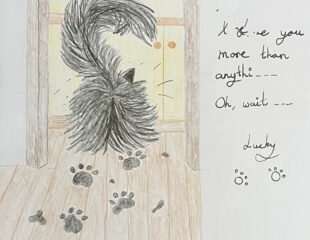 I love you
more than
anythi---
Oh, wait ---
Lucky